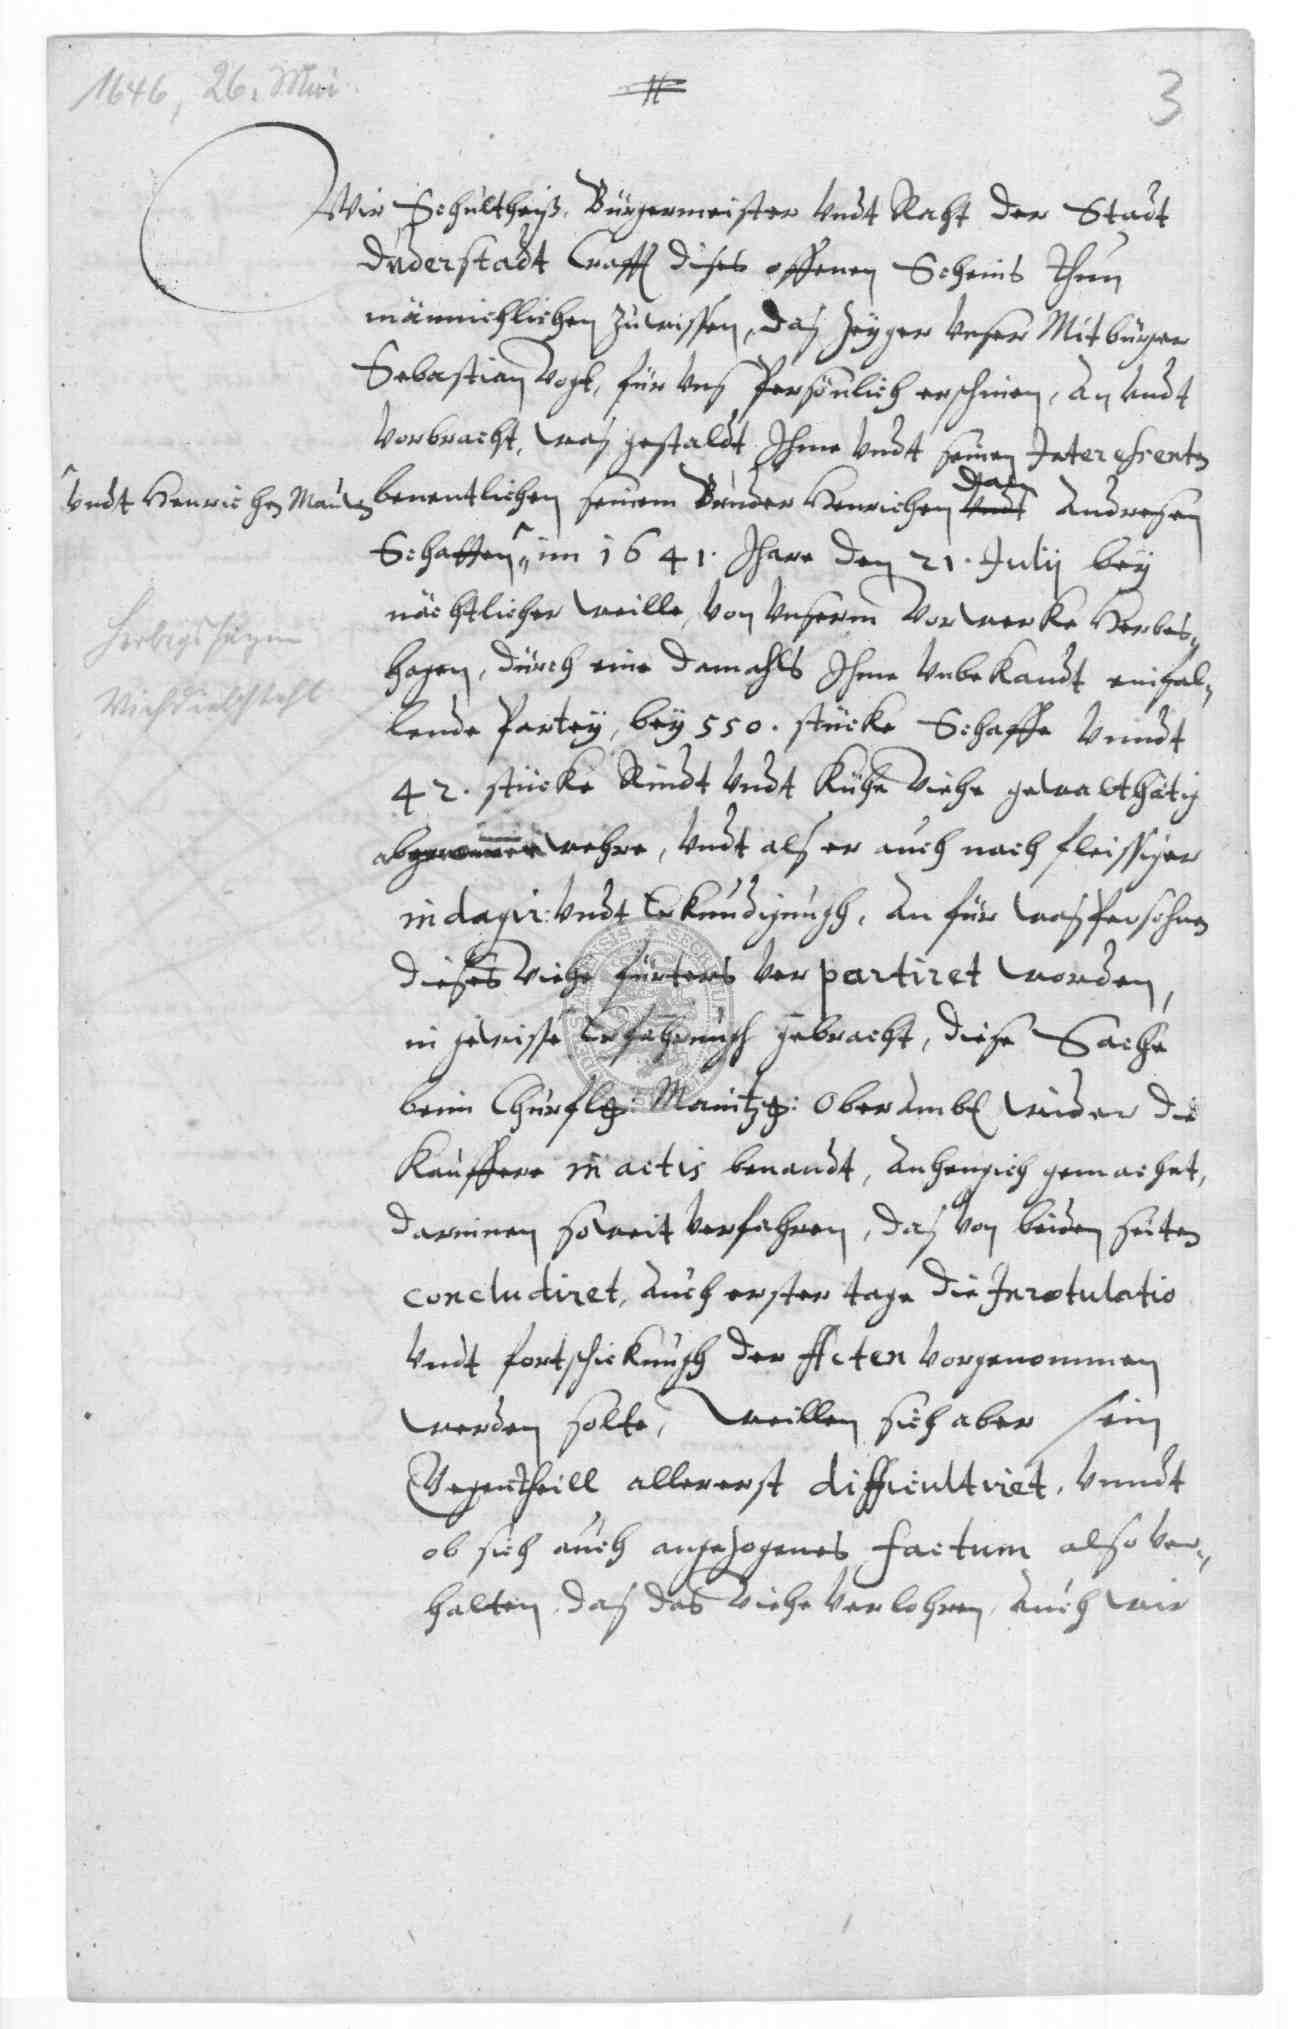 1646, 26. Mai
3
Wir Schultheiß, Bürgermeister vndt Raht der Stadt
Duderstadt Crafft dises offenen Scheins Thun
männichlichen zuwissen, daß zeyger vnser Mitbürger
Sebastian Vogt, für vnß Persönlich erschinen, an vndt
vorbracht, waß gestaldt Ihme vndt seinen Interessenten
benentlichen seinem Bruder Henrichen vndt dan Andresen
vndt Henrichen Maulen
Schaffen, im 1641. Jhare den 21. Julij bey
nächtlicher weille, von vnserm Vorwerke Herbes-
Herbigshagen
hagen, durch eine damahls Ihme vnbekandt einfal-
Viehdiebstahl
lende Partey, bey 550. stücke Schaffe vnndt
42. stücke Rindt vndt Kühe Viehe gewalthätig
abgenommen wehre, vndt alß er auch nach fleissiger
indagir: vndt Erkundigungh, an für waß Persohnen
dieses Viehe fürters verpartiret worden,
in gewisse Erfahrungh gebracht, diese Sache
beim Churfl: Maintz: Oberambt wider die
Kauffere in actis benandt, anhengich gemachet,
darinnen soweit verfahren, daß von beiden seiten
concludiret, auch erster tage die Inrotulatio
vndt fortschickungh der Acten vorgenommen
werden solte, weillen sich aber sein
Gegentheill allererst difficultiret, vnndt
ob sich auch angezogenes factum also ver-
halten, daß das Viehe verlohren, auch wir